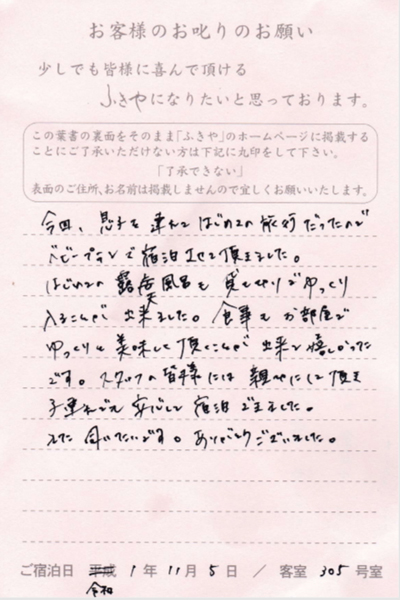 お客様のお叱りのお願い
少しでも皆様に喜んで頂ける
ふきやになりたいと思っております。
この葉書の裏面をそのまま「ふきや」のホームページに掲載する
ことにご了承いただけない方は下記に丸印をして下さい。
「了承できない」
表面のご住所、お名前は掲載しませんので宜しくお願いいたします。
今回、息子を連れてはじめての旅行だったので
ベビープランで宿泊させて頂きました。
はじめての露天風呂も貸し切りでゆっくり
入ることが出来ました。食事もお部屋で
ゆっくりと美味しく頂くことが出来て嬉しかった
です。スタッフの皆様には親切にして頂き
子連れでも安心して宿泊できました。
また伺いたいです。ありがとうございました。
ご宿泊日 平成 1年 11月 5日 / 客室 305号室
令和